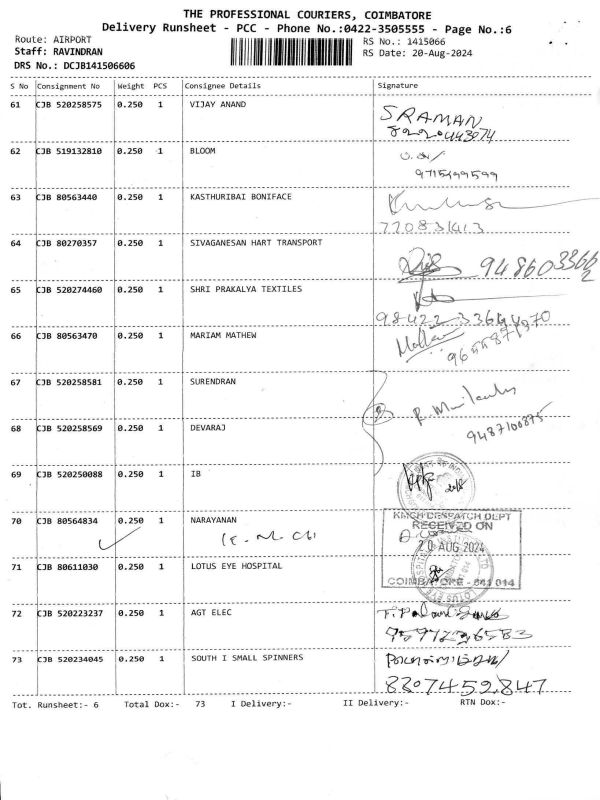 THE PROFESSIONAL COURIERS, COIMBATORE
Delivery Runsheet - PCC - Phone No.:0422-3505555 - Page No.:6
Route: AIRPORT
RS No.: 1415066
Staff: RAVINDRAN
RS Date: 20-Aug-2024
DRS No.: DCJB141506606
S No Consignment No Weight PCS Consignee Details Signature
61 CJB 520258575 0.250 1 VIJAY ANAND
SRAMAN
8220443074
62 CJB 519132810 0.250 1 BLOOM
9715499599
63 CJB 80563440 0.250 1 KASTHURIBAI BONIFACE
64 CJB 80270357 0.250 1 SIVAGANESAN HART TRANSPORT
9486033662
65 CJB 520274460 0.250 1 SHRI PRAKALYA TEXTILES
66 CJB 80563470 0.250 1 MARIAM MATHEW
67 CJB 520258581 0.250 1 SURENDRAN
68 CJB 520258569 0.250 1 DEVARAJ
9487100875
69 CJB 520250088 0.250 1 IB
70 CJB 80564834 0.250 1 NARAYANAN
KMCH DESPATCH DEPT
RECEIVED ON
20 AUG 2024
71 CJB 80611030 0.250 1 LOTUS EYE HOSPITAL
COIMBATORE - 641 014
72 CJB 520223237 0.250 1 AGT ELEC
73 CJB 520234045 0.250 1 SOUTH I SMALL SPINNERS
8307452847
Tot. Runsheet:- 6 Total Dox:- 73 I Delivery:- II Delivery:- RTN Dox:-